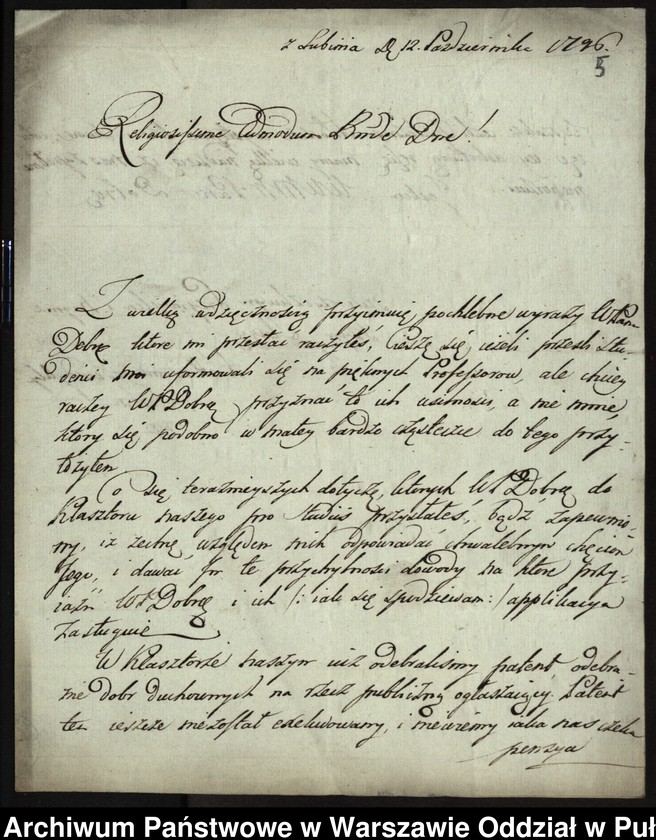 z Lubinia D 12. Października 1796.
5
Religiosissime Admodum Rnde Dne!
Z wielką wdzięcznością przyimuię pochlebne wyrazy WPana
Dobrz które mi przesłać raczyłeś, Cieszę się, ieżeli przeszli Stu-
denci moi uformowali się na pięknych Professorow, ale chciey
raczey WPDobrz przyznać to ich usilności, a nie mnie,
który się podobno w małey bardzo cząstecze do tego przy-
łożyłem
Co się teraźnieyszych dotycze, których WPDobrz do
Klasztoru naszego pro studiis przysłałeś, bądź zapewnio-
ny, iż zechcę względem nich odpowiadać chwalebnym chęciom
Jego, i dawać Jm te przychylności dowody na które przy-
iaźń WPDobrz i ich /: iak się spodziewam :/ applikacya
zasługuie
W Klasztorze naszym iuż odebraliśmy patent odebra-
nie dobr duchownych na rzecz publiczną ogłaszaiący. Patent
ten ieszcze niezostał exekwowany, i niewiemy iaka nas czeka
pensya
Archiwum Państwowe w Warszawie Oddział w Puł